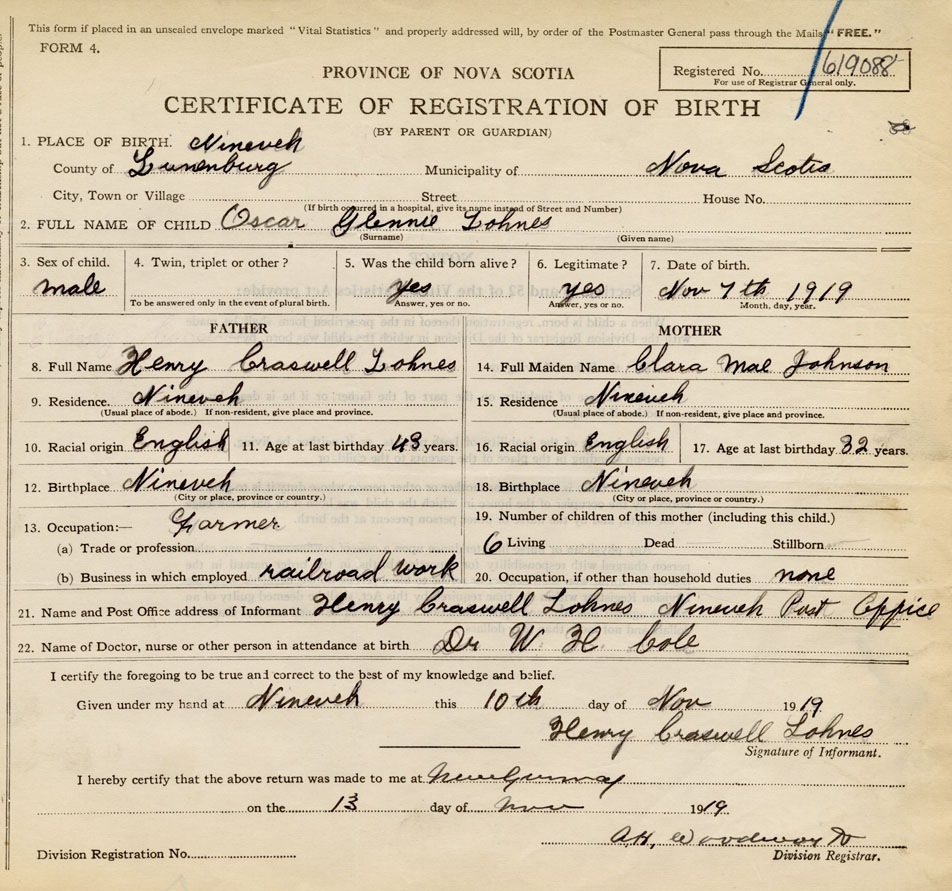 This form if placed in an unsealed envelope marked "Vital Statistics" and properly addressed will, by order of the Postmaster General pass through the Mails "FREE."
FORM 4.
Registered No. 619088
For use of Registrar General only.
PROVINCE OF NOVA SCOTIA
CERTIFICATE OF REGISTRATION OF BIRTH
(BY PARENT OR GUARDIAN)
1. PLACE OF BIRTH. Nineveh
County of Lunenburg Municipality of Nova Scotia
City, Town or Village Street House No.
(If birth occurred in a hospital, give its name instead of Street and Number)
2. FULL NAME OF CHILD Oscar Glennie Lohnes
(Surname) (Given name)
3. Sex of child. 4. Twin, triplet or other? 5. Was the child born alive? 6. Legitimate? 7. Date of birth.
male yes yes Nov 7th 1919
To be answered only in the event of plural birth. Answer, yes or no. Answer, yes or no. Month, day, year.
FATHER MOTHER
8. Full Name Henry Craswell Lohnes 14. Full Maiden Name Clara Mae Johnson
9. Residence. Nineveh 15. Residence Nineveh
(Usual place of abode.) If non-resident, give place and province. (Usual place of abode.) If non-resident, give place and province.
10. Racial origin English 11. Age at last birthday 43 years. 16. Racial origin English 17. Age at last birthday 32 years.
12. Birthplace Nineveh 18. Birthplace Nineveh
(City or place, province or country.) (City or place, province or country.)
13. Occupation:— Farmer 19. Number of children of this mother (including this child.)
(a) Trade or profession 6 Living Dead Stillborn
(b) Business in which employed railroad work 20. Occupation, if other than household duties none
21. Name and Post Office address of Informant Henry Craswell Lohnes Nineveh Post Office
22. Name of Doctor, nurse or other person in attendance at birth Dr W H Cole
I certify the foregoing to be true and correct to the best of my knowledge and belief.
Given under my hand at Nineveh this 10th day of Nov 1919
Henry Craswell Lohnes
Signature of Informant.
I hereby certify that the above return was made to me at New Germany
on the 13 day of Nov 1919.
A.H. Woodworth
Division Registration No. Division Registrar.